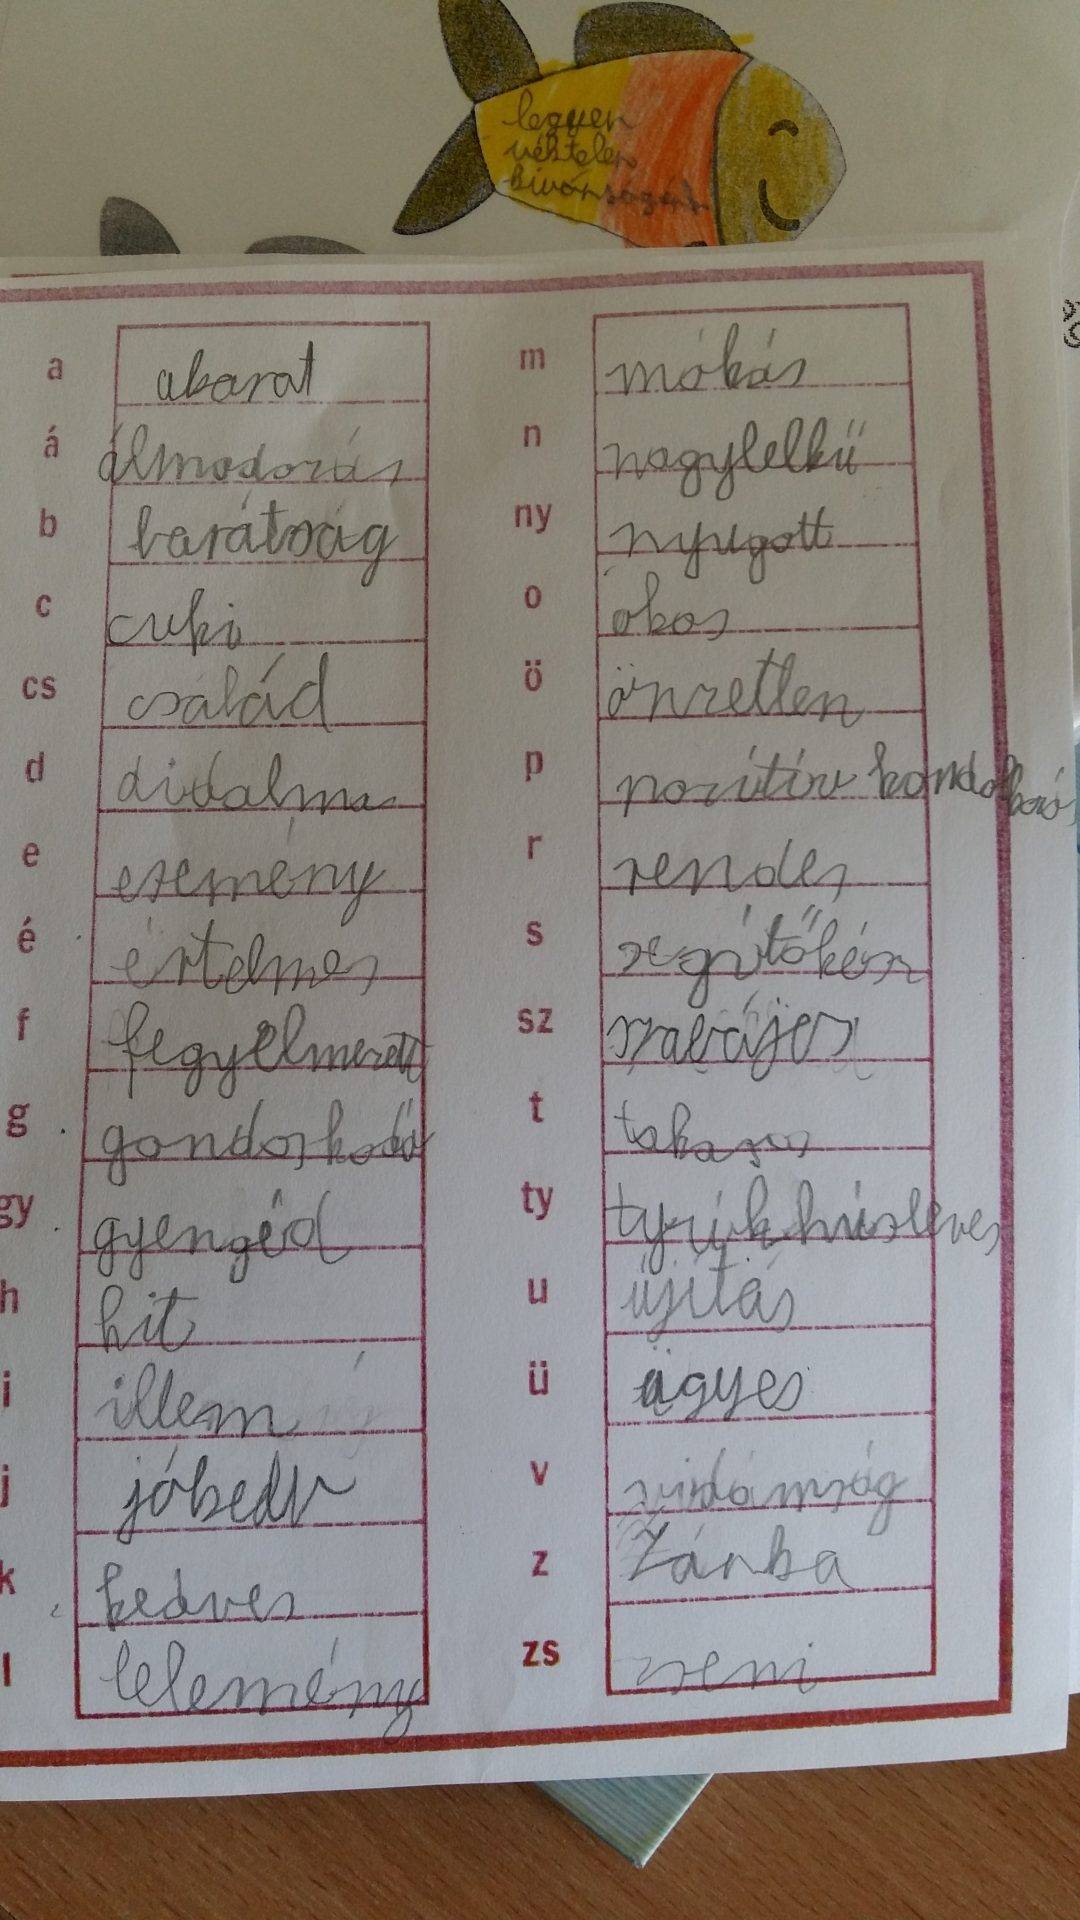 legyen
végtelen
kívánságod
a akarat
á álmodozás
b barátság
c cuki
cs család
d diadalma
e esemény
é értelmes
f fegyelmezett
g gondoskodó
gy gyengéd
h hit
i illem
j jókedv
k kedves
l lelemény
m mókás
n nagylelkű
ny nyugott
o okos
ö önzetlen
p pozítív
r rendes
s segítőkész
sz
t takaros
ty tyúkhúsleves
u újítás
ü ügyes
v vidámság
z Zánka
zs zseni